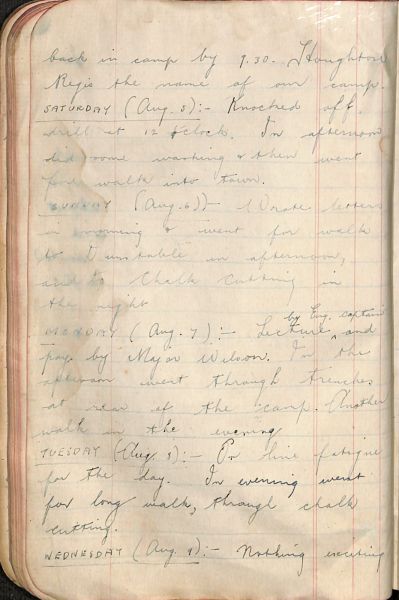 back in camp by 9.30. Houghton
Regis the name of our camp.
SATURDAY (Aug. 5):- Knocked off
drill at 12 o'clock. In afternoon
did some washing & then went
for walk into town.
SUNDAY (Aug. 6):- Wrote letters
in morning & went for walk
to Dunstable in afternoon,
and to Chalk Cutting in
the night
MONDAY (Aug. 7):- Lecture by Eng. captain and
pay by Major Wilson. In the
afternoon went through trenches
at rear of the camp. Another
walk in the evening
TUESDAY (Aug. 8):- On line fatigue
for the day. In evening went
for long walk, through chalk
cutting.
WEDNESDAY (Aug. 9):- Nothing exciting